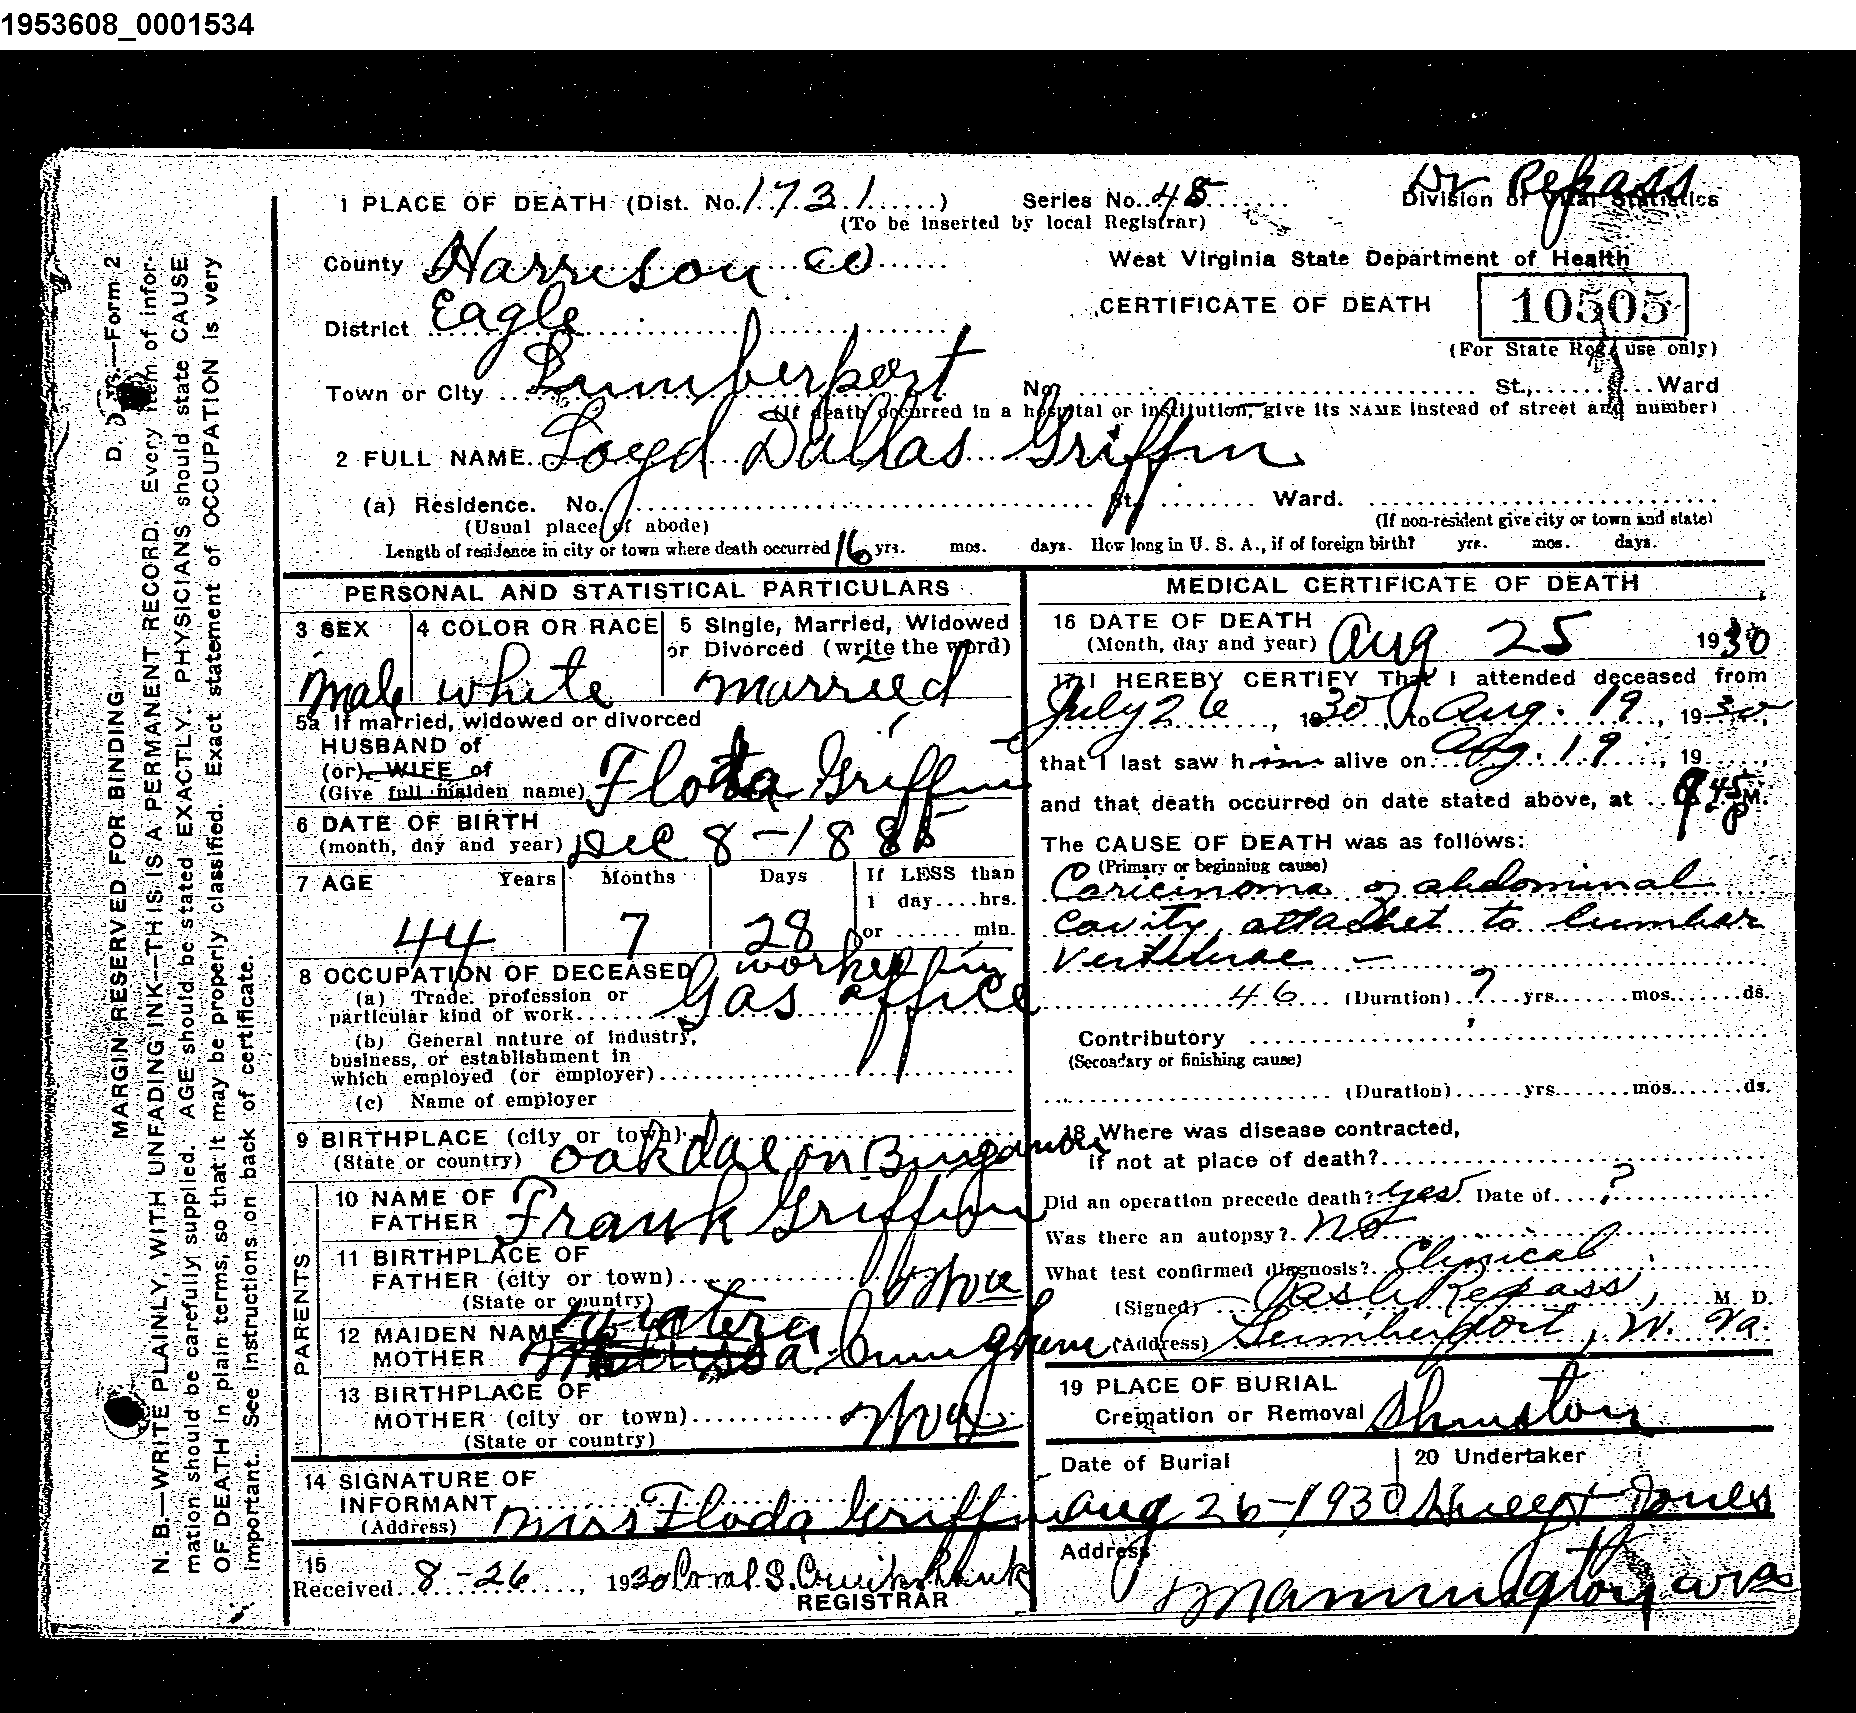 1953608_0001534
1 PLACE OF DEATH (Dist. No. 1731) Series No. 48 Dr Repass
Division of Vital Statistics
(To be inserted by local Registrar)
County Harrison Co West Virginia State Department of Health
CERTIFICATE OF DEATH 10505
District Eagle
(For State Reg. use only)
Town or City Lumberport No. St., Ward
(If death occurred in a hospital or institution, give its NAME instead of street and number)
2 FULL NAME Loyd Dallas Griffin
(a) Residence. No. St., Ward.
(Usual place of abode) (If non-resident give city or town and state)
Length of residence in city or town where death occurred 16 yrs. mos. days. How long in U. S. A., if of foreign birth? yrs. mos. days.
PERSONAL AND STATISTICAL PARTICULARS
3 SEX 4 COLOR OR RACE 5 Single, Married, Widowed
or Divorced (write the word)
Male white married
5a If married, widowed or divorced
HUSBAND of
(or) WIFE of
(Give full maiden name) Floda Griffin
6 DATE OF BIRTH
(month, day and year) Dec 8-1885
7 AGE Years Months Days If LESS than
1 day....hrs.
or ...... min.
44 7 28
8 OCCUPATION OF DECEASED worked in
(a) Trade, profession or
particular kind of work Gas office
(b) General nature of industry,
business, or establishment in
which employed (or employer)
(c) Name of employer
9 BIRTHPLACE (city or town)
(State or country) Oakdal on Bingamon
PARENTS
10 NAME OF
FATHER Frank Griffin
11 BIRTHPLACE OF
FATHER (city or town) W va
(State or country)
12 MAIDEN NAME
MOTHER
13 BIRTHPLACE OF
MOTHER (city or town) W va
(State or country)
14 SIGNATURE OF
INFORMANT
(Address) Mrs Floda Griffin
15
Received 8-26, 1930
REGISTRAR
MEDICAL CERTIFICATE OF DEATH
16 DATE OF DEATH
(Month, day and year) Aug 25 1930
17 I HEREBY CERTIFY That I attended deceased from
July 26, 1930, to Aug. 19, 1930,
that I last saw him alive on Aug. 19, 19
and that death occurred on date stated above, at 9 45 P M.
The CAUSE OF DEATH was as follows:
(Primary or beginning cause)
Caricinoma of abdominal
cavity attachet to lumbar
vertebrae —
46 (Duration) ? yrs. mos. ds.
Contributory
(Secondary or finishing cause)
(Duration) yrs. mos. ds.
18 Where was disease contracted,
if not at place of death?
Did an operation precede death? yes. Date of ?
Was there an autopsy? No
What test confirmed diagnosis? Clinical
(Signed) Repass, M. D.
(Address) Lumberport, W. Va.
19 PLACE OF BURIAL
Cremation or Removal Shinston
Date of Burial 20 Undertaker
Aug 26-1930 Jones
Address
Mannington W va
D. D. —Form 2
MARGIN RESERVED FOR BINDING
N. B.—WRITE PLAINLY, WITH UNFADING INK—THIS IS A PERMANENT RECORD. Every item of infor-
mation should be carefully supplied. AGE should be stated EXACTLY. PHYSICIANS should state CAUSE
OF DEATH in plain terms, so that it may be properly classified. Exact statement of OCCUPATION is very
important. See instructions on back of certificate.